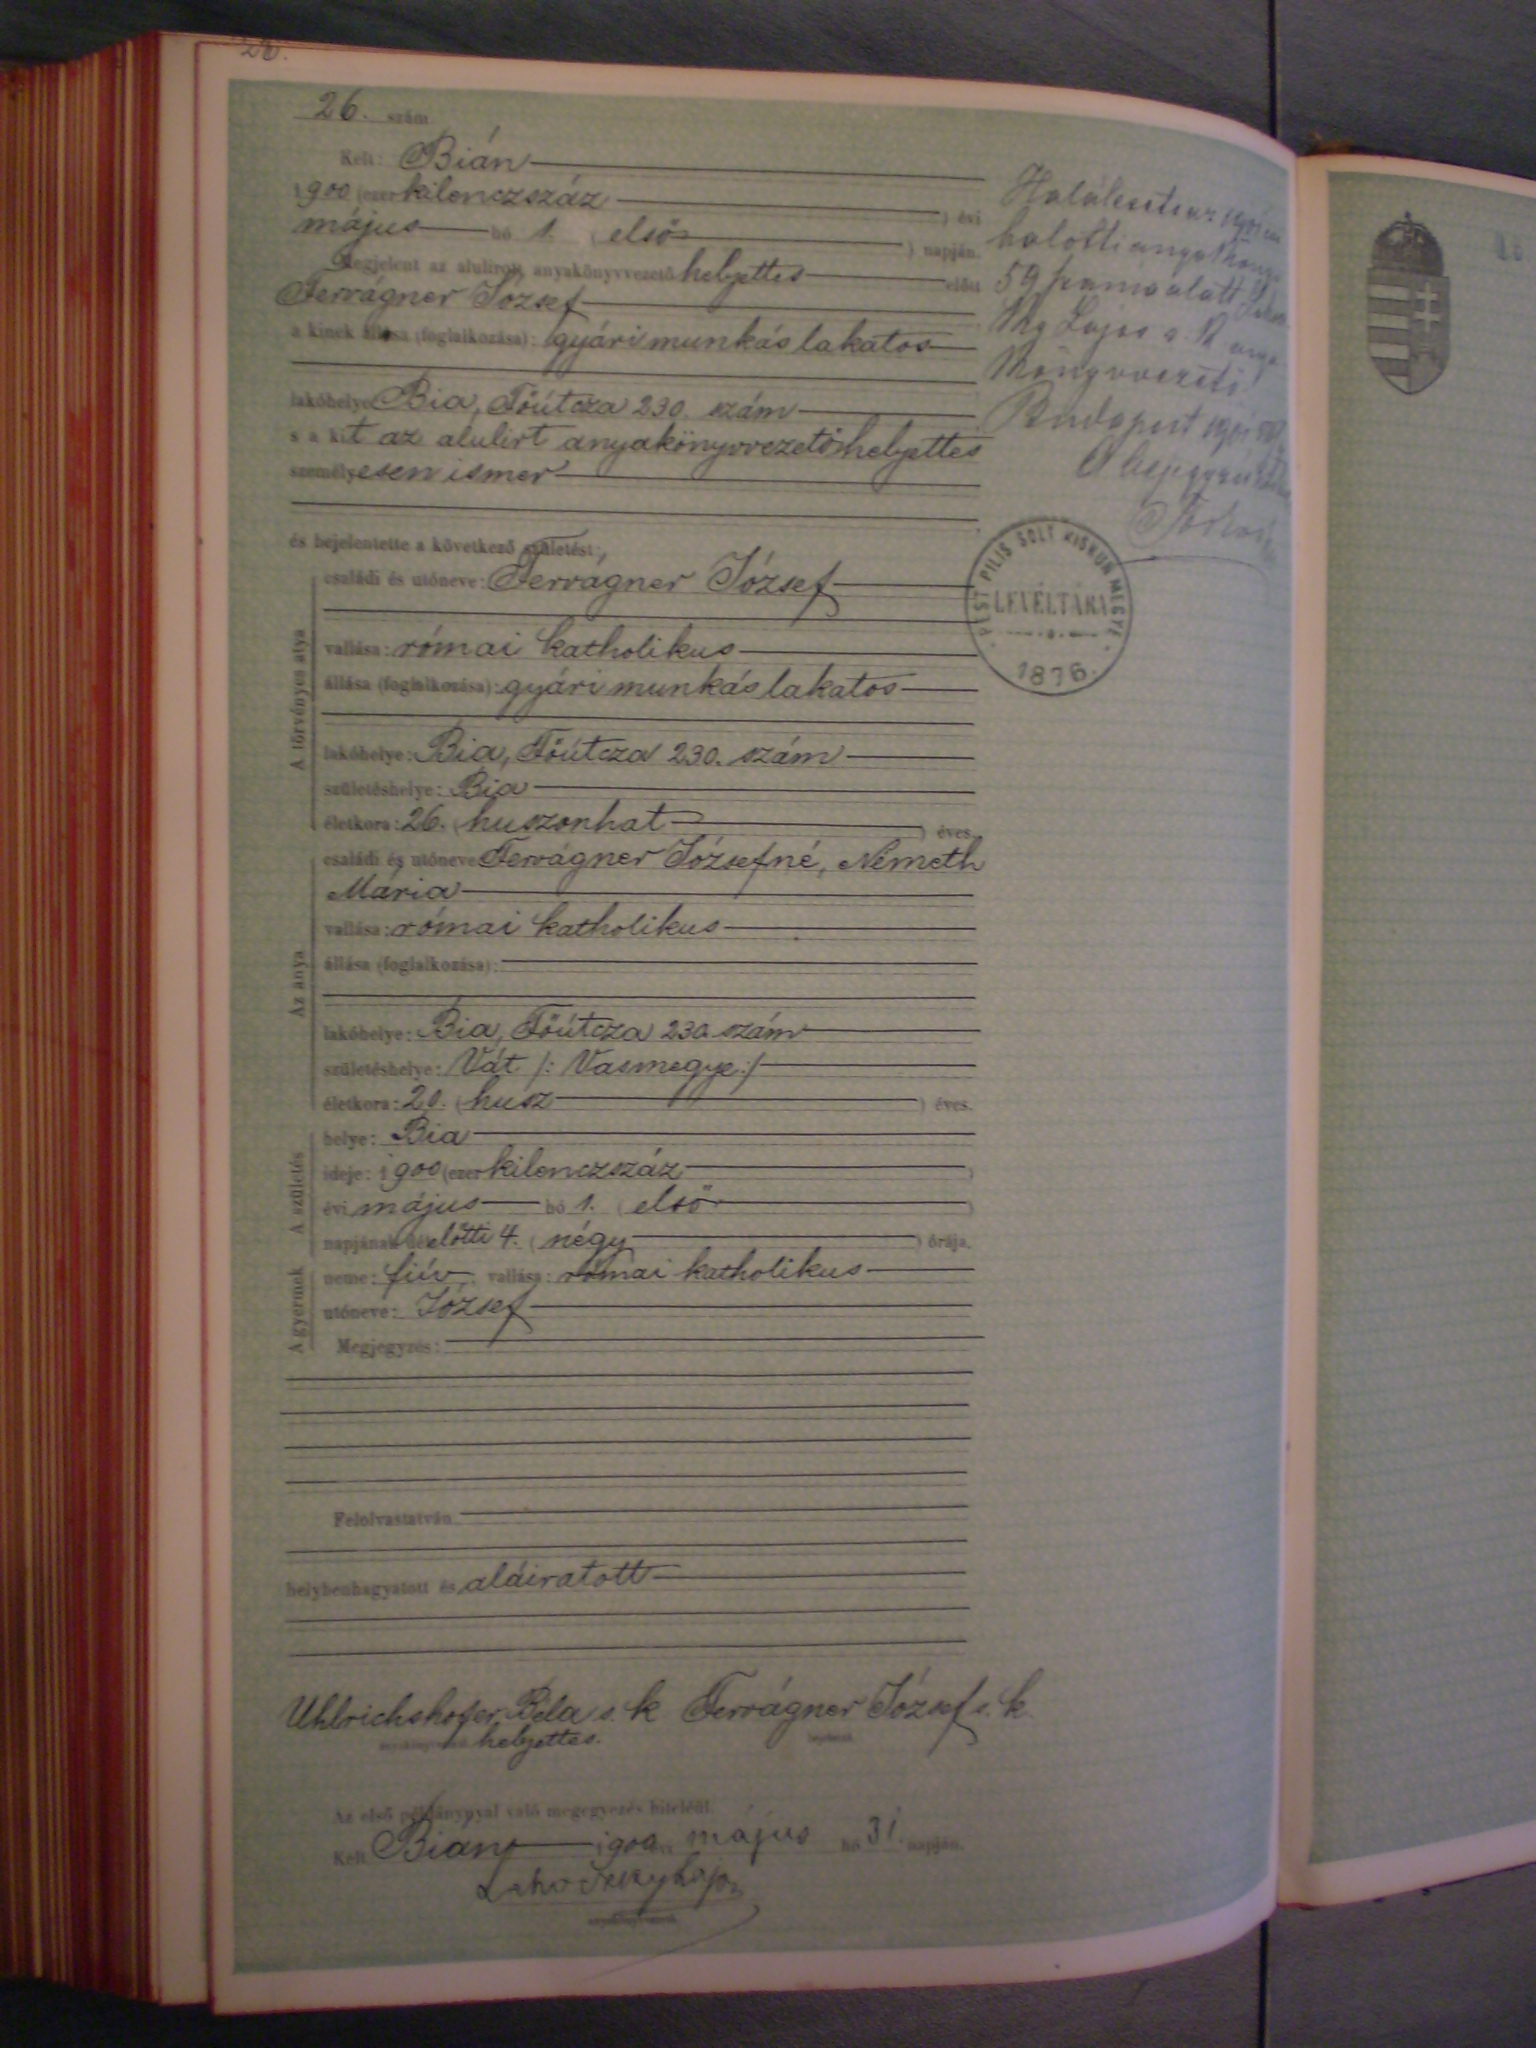 26.
26. szám
Kelt: Bián
1900 (ezer kilenczszáz) évi
május hó 1. (első) napján.
Megjelent az alulirott anyakönyvvezető helyettes előtt
Ferrágner József
a kinek állása (foglalkozása): gyári munkás lakatos
lakóhelye Bia, Főútcza 230. szám
s a kit az alulirt anyakönyvvezetőhelyettes
személyesen ismer
és bejelentette a következő születést:
A törvényes atya
családi és utóneve: Ferrágner József
vallása: római katholikus
állása (foglalkozása): gyári munkás lakatos
lakóhelye: Bia, Főútcza 230. szám
születéshelye: Bia
életkora: 26. (huszonhat) éves.
Az anya
családi és utóneve Ferrágner Józsefné, Németh
Mária
vallása: római katholikus
állása (foglalkozása):
lakóhelye: Bia, Főútcza 230 szám
születéshelye: Vát /: Vasmegye :/
életkora: 20. (húsz) éves.
A születés
helye: Bia
ideje: 1900 (ezer kilenczszáz)
évi május hó 1. (első)
napjának délelőtti 4. (négy) órája.
A gyermek
neme: fiú; vallása: római katholikus
utóneve: József
Megjegyzés:
Felolvastatván
helybenhagyatott és aláiratott
Uhlrichshofer Béla s. k. Ferrágner József s. k.
helyettes.
Az első példánynyal való megegyezés hiteléül.
Kelt Bián 1900 évi május hó 31. napján.
Lajos
anyakönyvvezető
halotti anyakönyv
59 száma alatt
Lajos s. k. anya
könyvvezető
Budapest
PEST PILIS SOLT KISKUN MEGYE
LEVÉLTÁRA
1876.